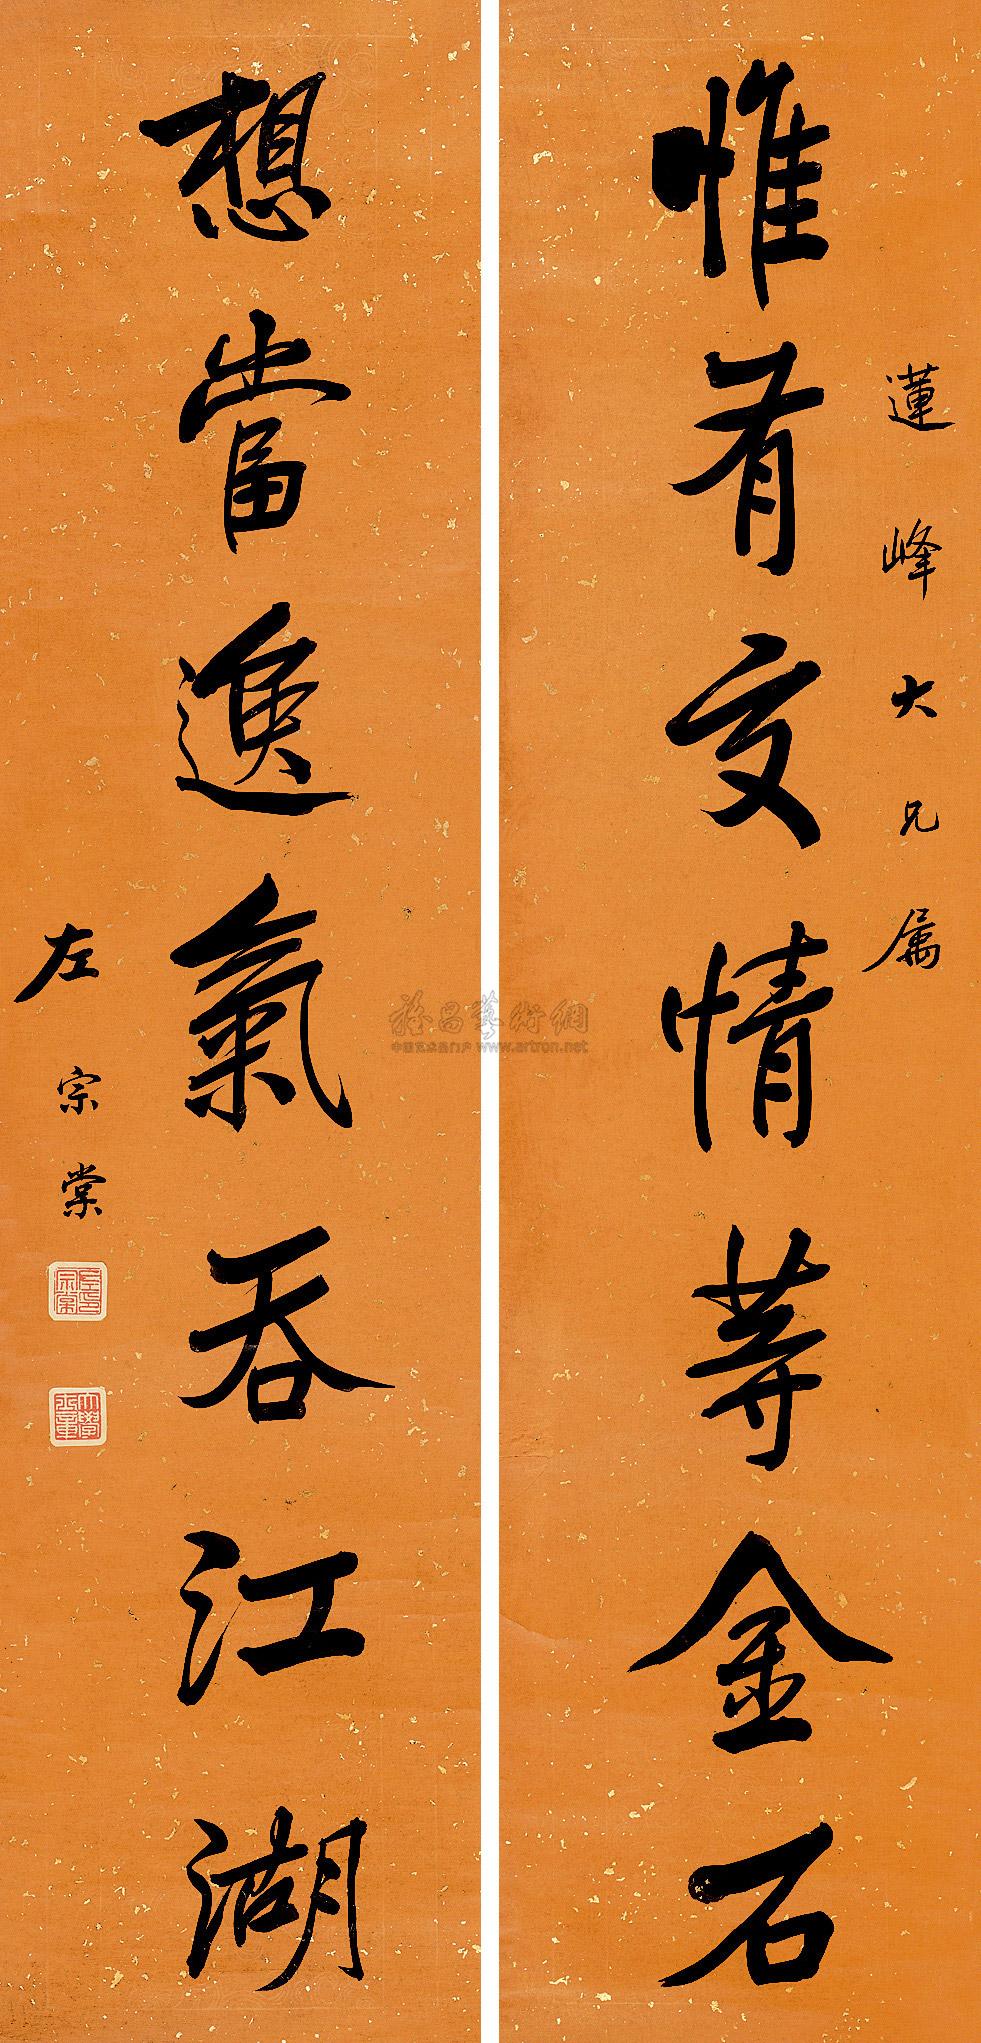 蓮峰大兄属
惟有交情等金石
想當逸氣吞江湖
左宗棠
左宗棠印
大學士章
雅昌藝術網
中国艺术品门户 www.artron.net